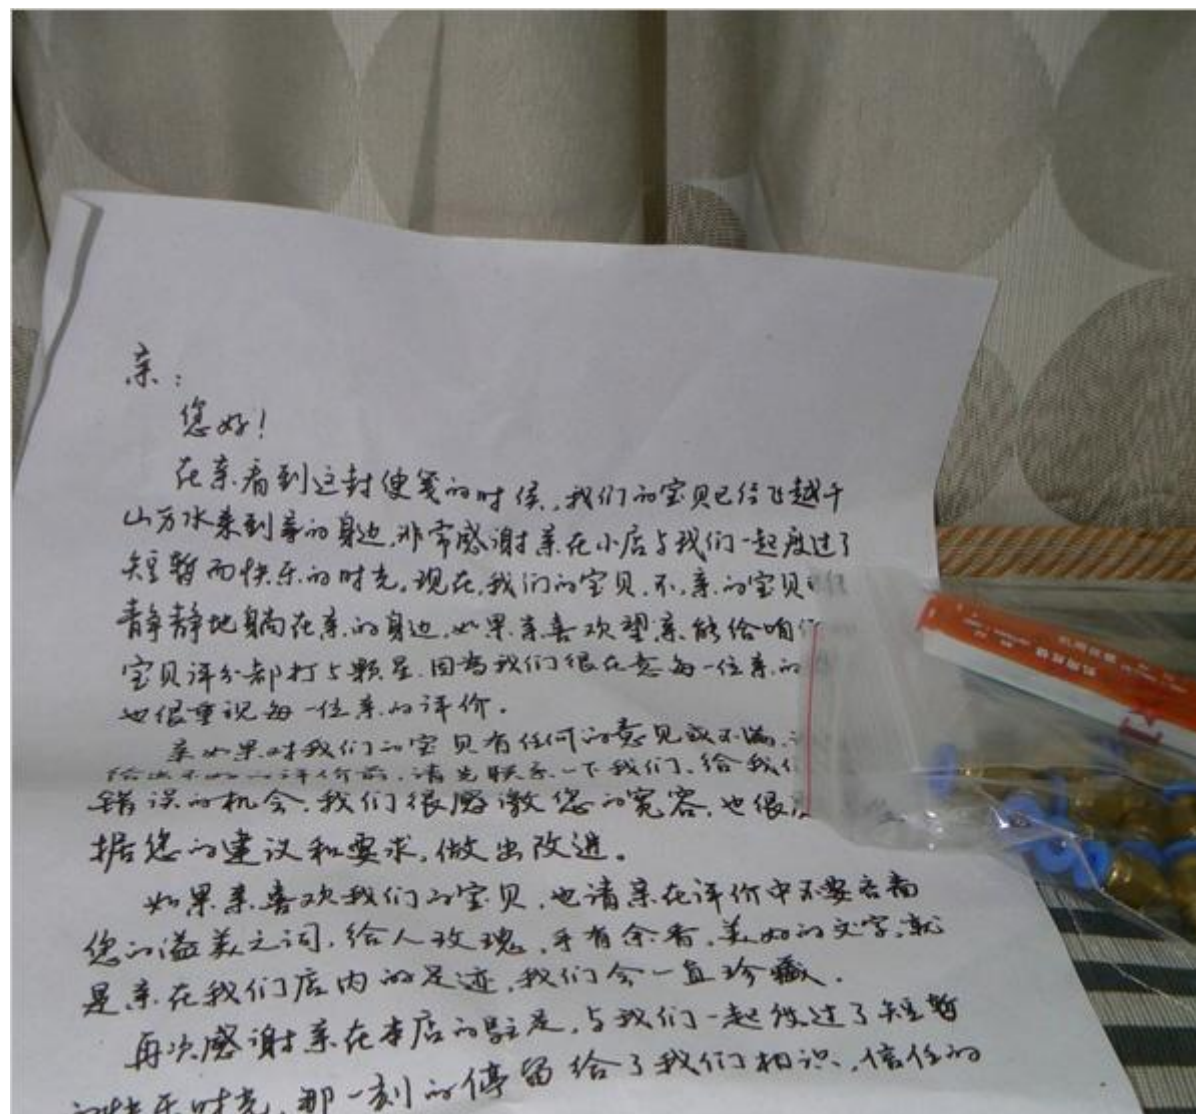 亲:
您好!
在亲看到这封便笺的时候,我们的宝贝已经飞越千
山万水来到亲的身边,非常感谢亲在小店与我们一起度过了
短暂而快乐的时光。现在,我们的宝贝,不,亲的宝贝
静静地躺在亲的身边,如果亲喜欢望亲能给咱们
宝贝评分都打5颗星,因为我们很在意每一位亲的
也很重视每一位亲的评价。
亲如果对我们的宝贝有任何的意见或不满,
评价前,请先联系一下我们,给我们
错误的机会,我们很感激您的宽容,也很
据您的建议和要求,做出改进。
如果亲喜欢我们的宝贝,也请亲在评价中不要吝啬
您的溢美之词,给人玫瑰,手有余香,美好的文字,就
是亲在我们店内的足迹,我们会一直珍藏.
再次感谢亲在本店的驻足,与我们一起度过了短暂
的快乐时光,那一刻的停留给了我们相识、信任的